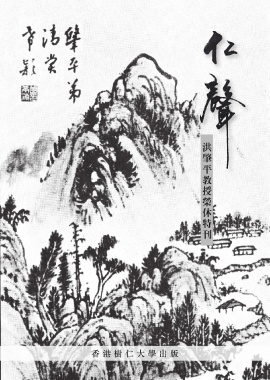 仁聲
洪肇平教授榮休特刊
肇平弟
清賞
香港樹仁大學出版